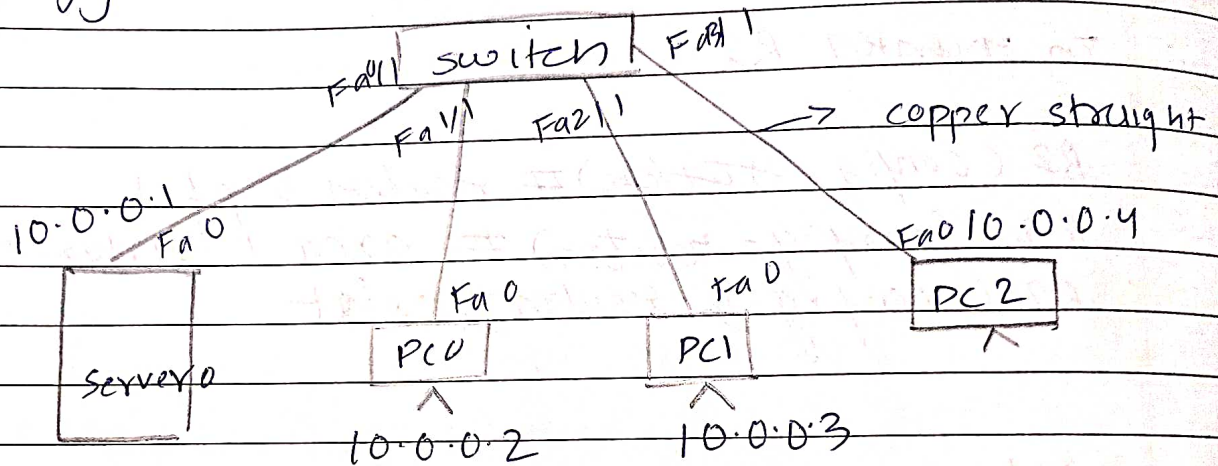 switch
Fa0/1
Fa3/1
Fa1/1
Fa2/1
→ copper straight
10.0.0.1
Fa0
Fa0
Fa0
Fa0 10.0.0.4
Server0
PC0
PC1
PC2
10.0.0.2
10.0.0.3